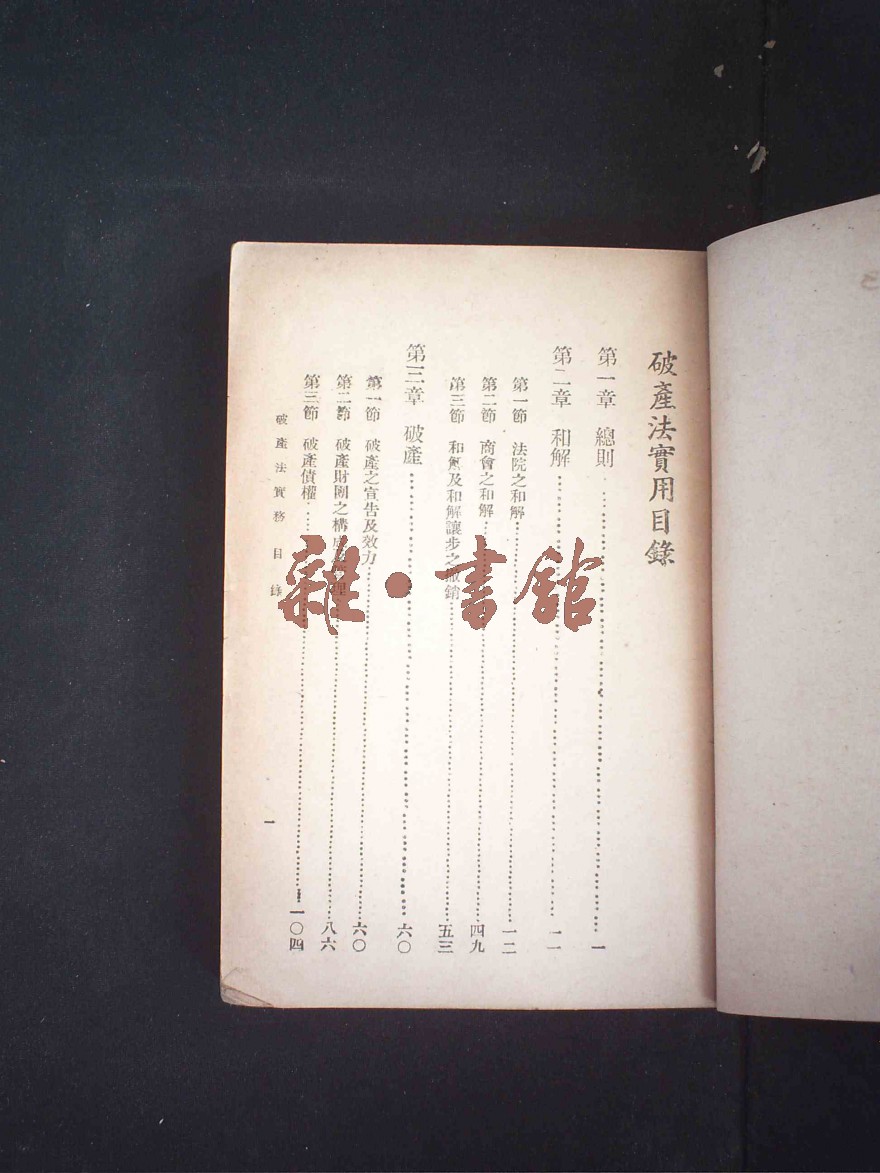 破產法實用目錄
第一章 總則 一
第二章 和解 一一
第一節 法院之和解 一二
第二節 商會之和解 四九
第三節 和解及和解讓步之撤銷 五三
第三章 破產 六〇
第一節 破產之宣告及效力 六〇
第二節 破產財團之構成及管理 八六
第三節 破產債權 一〇四
破產法實務 目錄
一
雜·書館